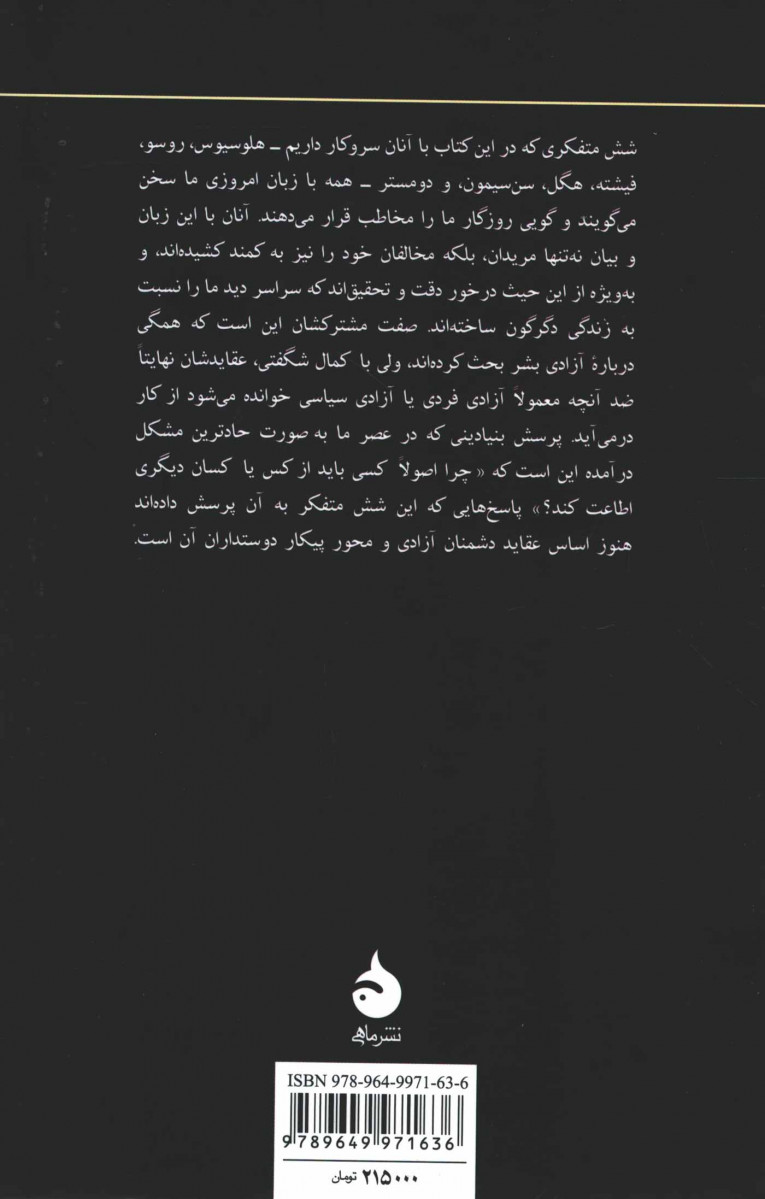 شش متفکری که در این کتاب با آنان سروکار داریم ــ هلوسیوس، روسو،
فیشته، هگل، سن‌سیمون، و دومستر ــ همه با زبان امروزی ما سخن
می‌گویند و گویی روزگار ما را مخاطب قرار می‌دهند. آنان با این زبان
و بیان نه‌تنها مریدان، بلکه مخالفان خود را نیز به کمند کشیده‌اند، و
به‌ویژه از این حیث درخور دقت و تحقیق‌اند که سراسر دید ما را نسبت
به زندگی دگرگون ساخته‌اند. صفت مشترکشان این است که همگی
دربارهٔ آزادی بشر بحث کرده‌اند، ولی با کمال شگفتی، عقایدشان نهایتاً
ضد آنچه معمولاً آزادی فردی یا آزادی سیاسی خوانده می‌شود از کار
درمی‌آید. پرسش بنیادینی که در عصر ما به صورت حادترین مشکل
درآمده این است که «چرا اصولاً کسی باید از کس یا کسان دیگری
اطاعت کند؟» پاسخ‌هایی که این شش متفکر به آن پرسش داده‌اند
هنوز اساس عقاید دشمنان آزادی و محور پیکار دوستداران آن است.
نشرماهی
ISBN 978-964-9971-63-6
9 789649 971636
۲۱۵۰۰۰ تومان